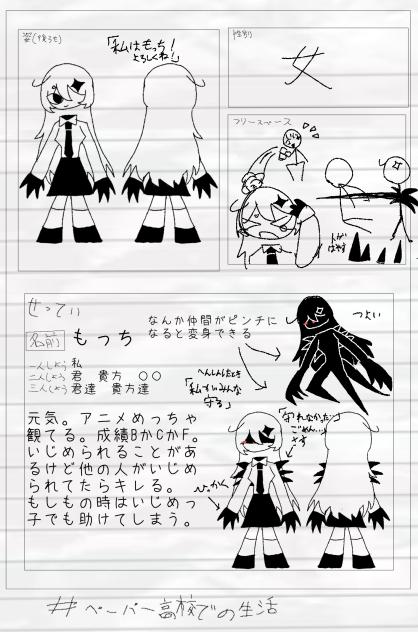 姿(後ろも)
「私はもっち！
よろしくね！」
性別
女
フリースペース
トゲ
はやす
せってい
名前 もっち
なんか仲間がピンチに
なると変身できる
つよい
一人しょう 私
二人しょう 君 貴方 〇〇
三人しょう 君達 貴方達
へんしんしたとき
「私がみんな
守る」
元気。アニメめっちゃ
観てる。成績BかCかF。
いじめられることがあ
るけど他の人がいじめ
られてたらキレる。
もしもの時はいじめっ
子でも助けてしまう。
「守れなかった…
ごめん…」
さす
#ペーパー高校での生活